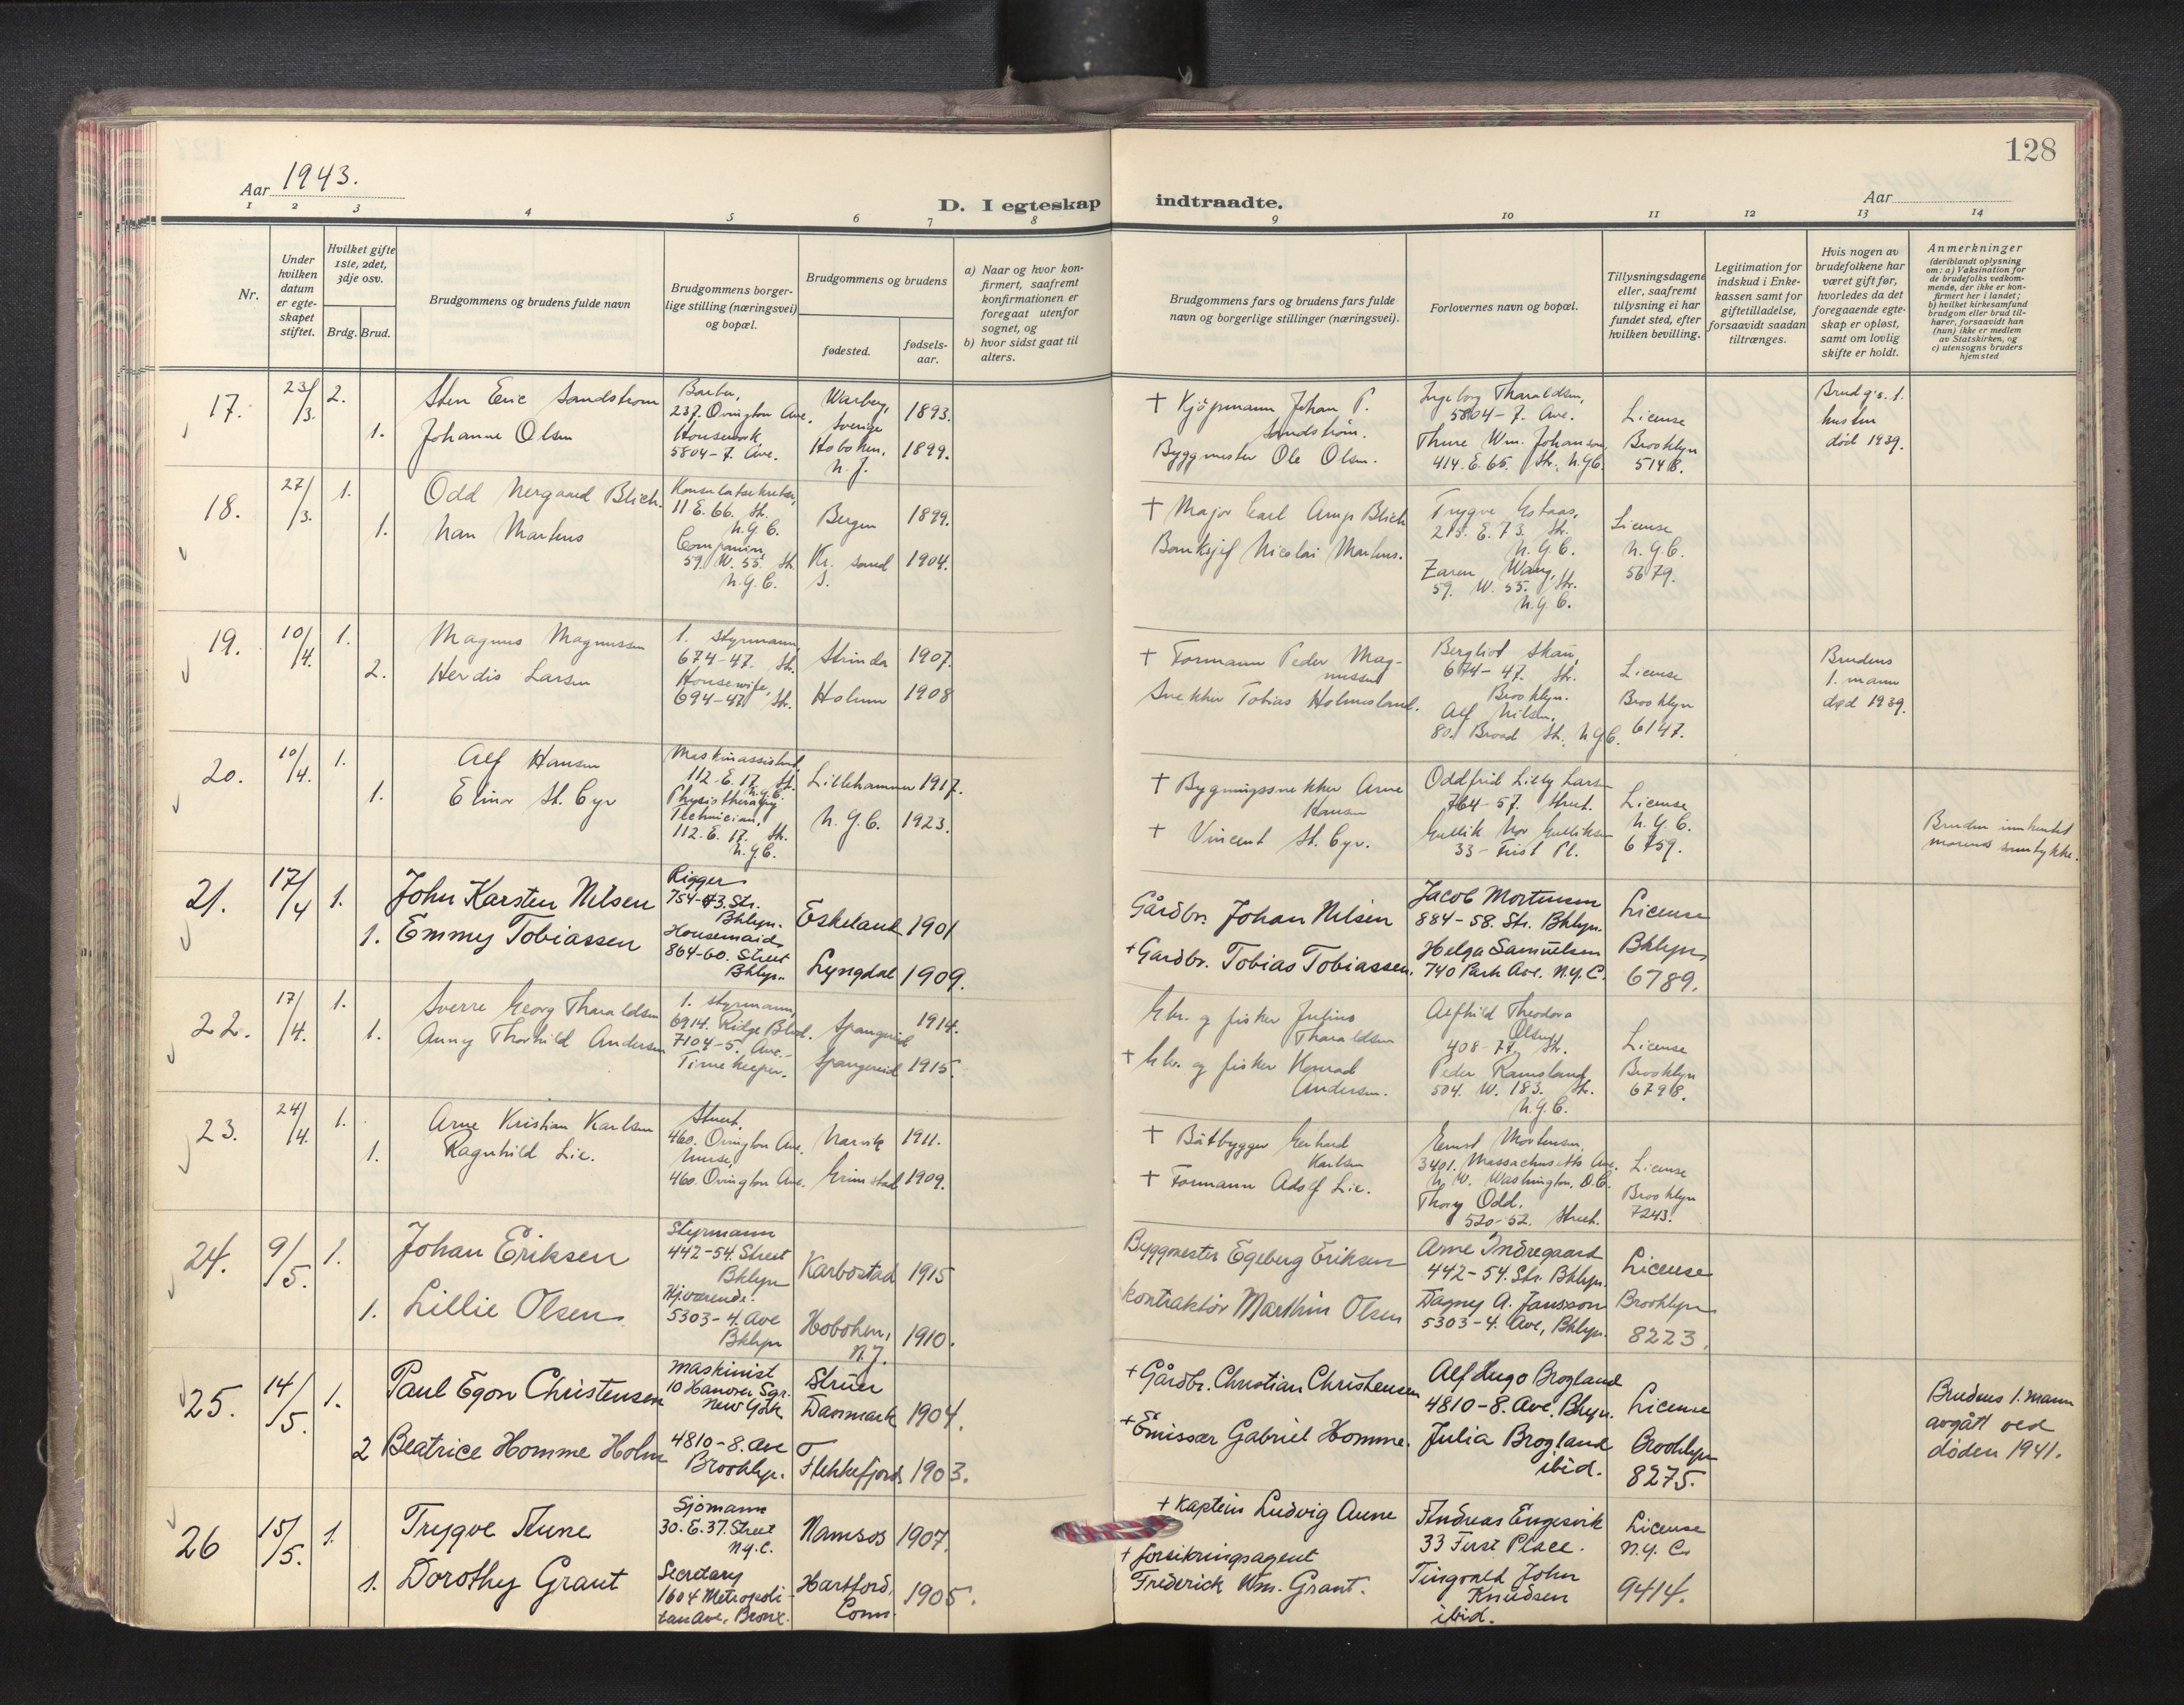 128
Aar 1943.
D. I egteskap indtraadte.
Aar
1 2 3 4 5 6 7 8 9 10 11 12 13 14
Nr.
Under hvilken datum er egteskapet stiftet.
Hvilket gifte 1ste, 2det, 3dje osv.
Brdg. Brud.
Brudgommens og brudens fulde navn
Brudgommens borgerlige stilling (næringsvei) og bopæl.
Brudgommens og brudens
fødested.
fødselsaar.
a) Naar og hvor konfirmert, saafremt konfirmationen er foregaat utenfor sognet, og
b) hvor sidst gaat til alters.
Brudgommens fars og brudens fars fulde navn og borgerlige stillinger (næringsvei).
Forlovernes navn og bopæl.
Tillysningsdagene eller, saafremt tillysning ei har fundet sted, efter hvilken bevilling.
Legitimation for indskud i Enkekassen samt for giftetilladelse, forsaavidt saadan tiltrænges.
Hvis nogen av brudefolkene har været gift før, hvorledes da det foregaaende egteskap er opløst, samt om lovlig skifte er holdt.
Anmerkninger (deriblandt oplysning om: a) Vaksination for de brudefolks vedkommende, der ikke er konfirmert her i landet; b) hvilket kirkesamfund brudgom eller brud tilhører, forsaavidt han (hun) ikke er medlem av Statskirken, og c) utensogns bruders hjemsted
17. 23/3. 2.
Sten Eric Sandstrom
Barber,
237. Ovington Ave.
Warberg, Sverige
1893.
† Kjøpmann Johan P. Sandström.
Ingeborg Tharaldsen,
5804-7. Ave.
License
Brooklyn
5148.
Brudg's. 1.
hustru
død 1939.
1. Johanne Olsen
Housework,
5804-7. Ave.
Hoboken, N.J.
1899.
Byggmester Ole Olsen.
Thure Wm. Johanson,
414. E. 65. Str. N.Y.C.
18. 27/3. 1.
Odd Nergaard Blich.
Konsulatsekretær,
11 E. 66. St.
N.Y.C.
Bergen
1899.
† Major Carl Blich
Trygve
215. E. 73. Str.
N.Y.C.
License
N.Y.C.
5679.
1. Nan Martens
Companion,
59. W. 55. St.
N.Y.C.
Kr. sand S.
1904.
Banksjef Nicolai Martens.
Wang,
59. W. 55. Str.
N.Y.C.
19. 10/4. 1.
Magnus Magnussen
1. Styrmann,
674-47. St.
Strinda
1907.
† Formann Peder Magnussen
Bergliot Skau,
674-47. Str.
Brooklyn.
License
Brooklyn
6147.
Brudens
1. mann
død 1939.
2. Herdis Larsen
Housewife,
694-47. St.
Holum
1908
Snekker Tobias Holmesland.
Alf Nilsen,
80. Broad St., N.Y.C.
20. 10/4. 1.
Alf Hansen
Maskinassistent
112. E. 17. St.
N.Y.C.
Lillehammer
1917.
† Bygningssnekker Arne Hansen
Oddfrid Lilly Larsen
764-57. Street.
License
N.Y.C.
6759.
1. Elinor St. Cyr
Physiotherapy
Technician.
112. E. 17. St.
N.Y.C.
N.Y.C.
1923.
† Vincent St. Cyr.
Gullik Nor Gulliksen
33-First Pl.
Bruden innhentet
morens samtykke.
21. 17/4 1.
John Karsten Nilsen
Rigger
754-43. Str.
Bklyn.
Eskeland
1901
Gårdbr. Johan Nilsen
Jacob Mortensen
884-58. Str. Bklyn.
License
Bklyn
6789.
1. Emmy Tobiassen
Housemaid
864-60. Street
Bklyn.
Lyngdal
1909.
+ Gardbr. Tobias Tobiassen.
Helga Samuelsen
740 Park Ave. N.Y.C.
22. 17/4. 1.
Sverre Georg Tharaldsen
1. styrmann,
6914. Ridge Blvd.
Spangereid
1914.
Gbr. og fisker Julius Tharaldsen
Alfhild Theodora Olsen
408-77. Str.
License
Brooklyn
6798.
1. Anny Thorhild Andersen
7104-5. Ave.-
Timekeeper.
Spangereid
1915.
† Gbr. og fisker Konrad Andersen.
Peder Ramsland
504. W. 183. St.
N.Y.C.
23. 24/4. 1.
Arne Kristian Karlsen
Stuert,
460. Ovington Ave.
Narvik
1911.
† Båtbygger Gerhard Karlsen
Ernst Mortensen,
3401. Massachusetts Ave.
N.W. Washington, D.C.
License
Brooklyn
7243.
1. Ragnhild Lie.
Nurse,
460. Ovington Ave.
Grimstad
1909.
† Formann Adolf Lie.
Thory Odd.
520-52. Street.
24. 9/5. 1.
Johan Eriksen
Styrmann
442-54. Street
Bklyn
Karbostad
1915
Byggmester Egeberg Eriksen
Arne Indregaard
442-54. Str. Bklyn.
License
Brooklyn
8223.
1. Lillie Olsen.
Hjværende.
5303-4. Ave
Bklyn
Hoboken, N.J.
1910.
kontraktør Marthin Olsen
Dagny A. Jansson
5303-4. Ave, Bklyn.
25. 14/5. 1.
Paul Egon Christensen
Maskinist
10 Hanover Sqr.
New York
Struer Danmark
1904.
+ Gårdbr. Christian Christensen
Alf Hugo Brogland
4810-8. Ave. Bklyn.
License
Brooklyn
8275.
Brudens 1. mann
avgått ved
døden 1941.
2 Beatrice Homme Holm
4810-8. Ave
Brooklyn.
Flekkefjord
1903.
+ Emissær Gabriel Homme.
Julia Brogland
ibid.
26 15/5. 1.
Trygve Aune
Sjømann
30. E. 37. Street
N.Y.C.
Namsos
1907.
+ Kaptein Ludvig Aune
Andreas Engesvik
33 First Place.
License
N.Y.C.
9414.
1. Dorothy Grant
Secretary
1604 Metropolitan Ave, Bronx.
Hartford, Conn.
1905.
+ forsikringsagent
Frederick Wm. Grant.
Tingvald John
Knudsen
ibid.